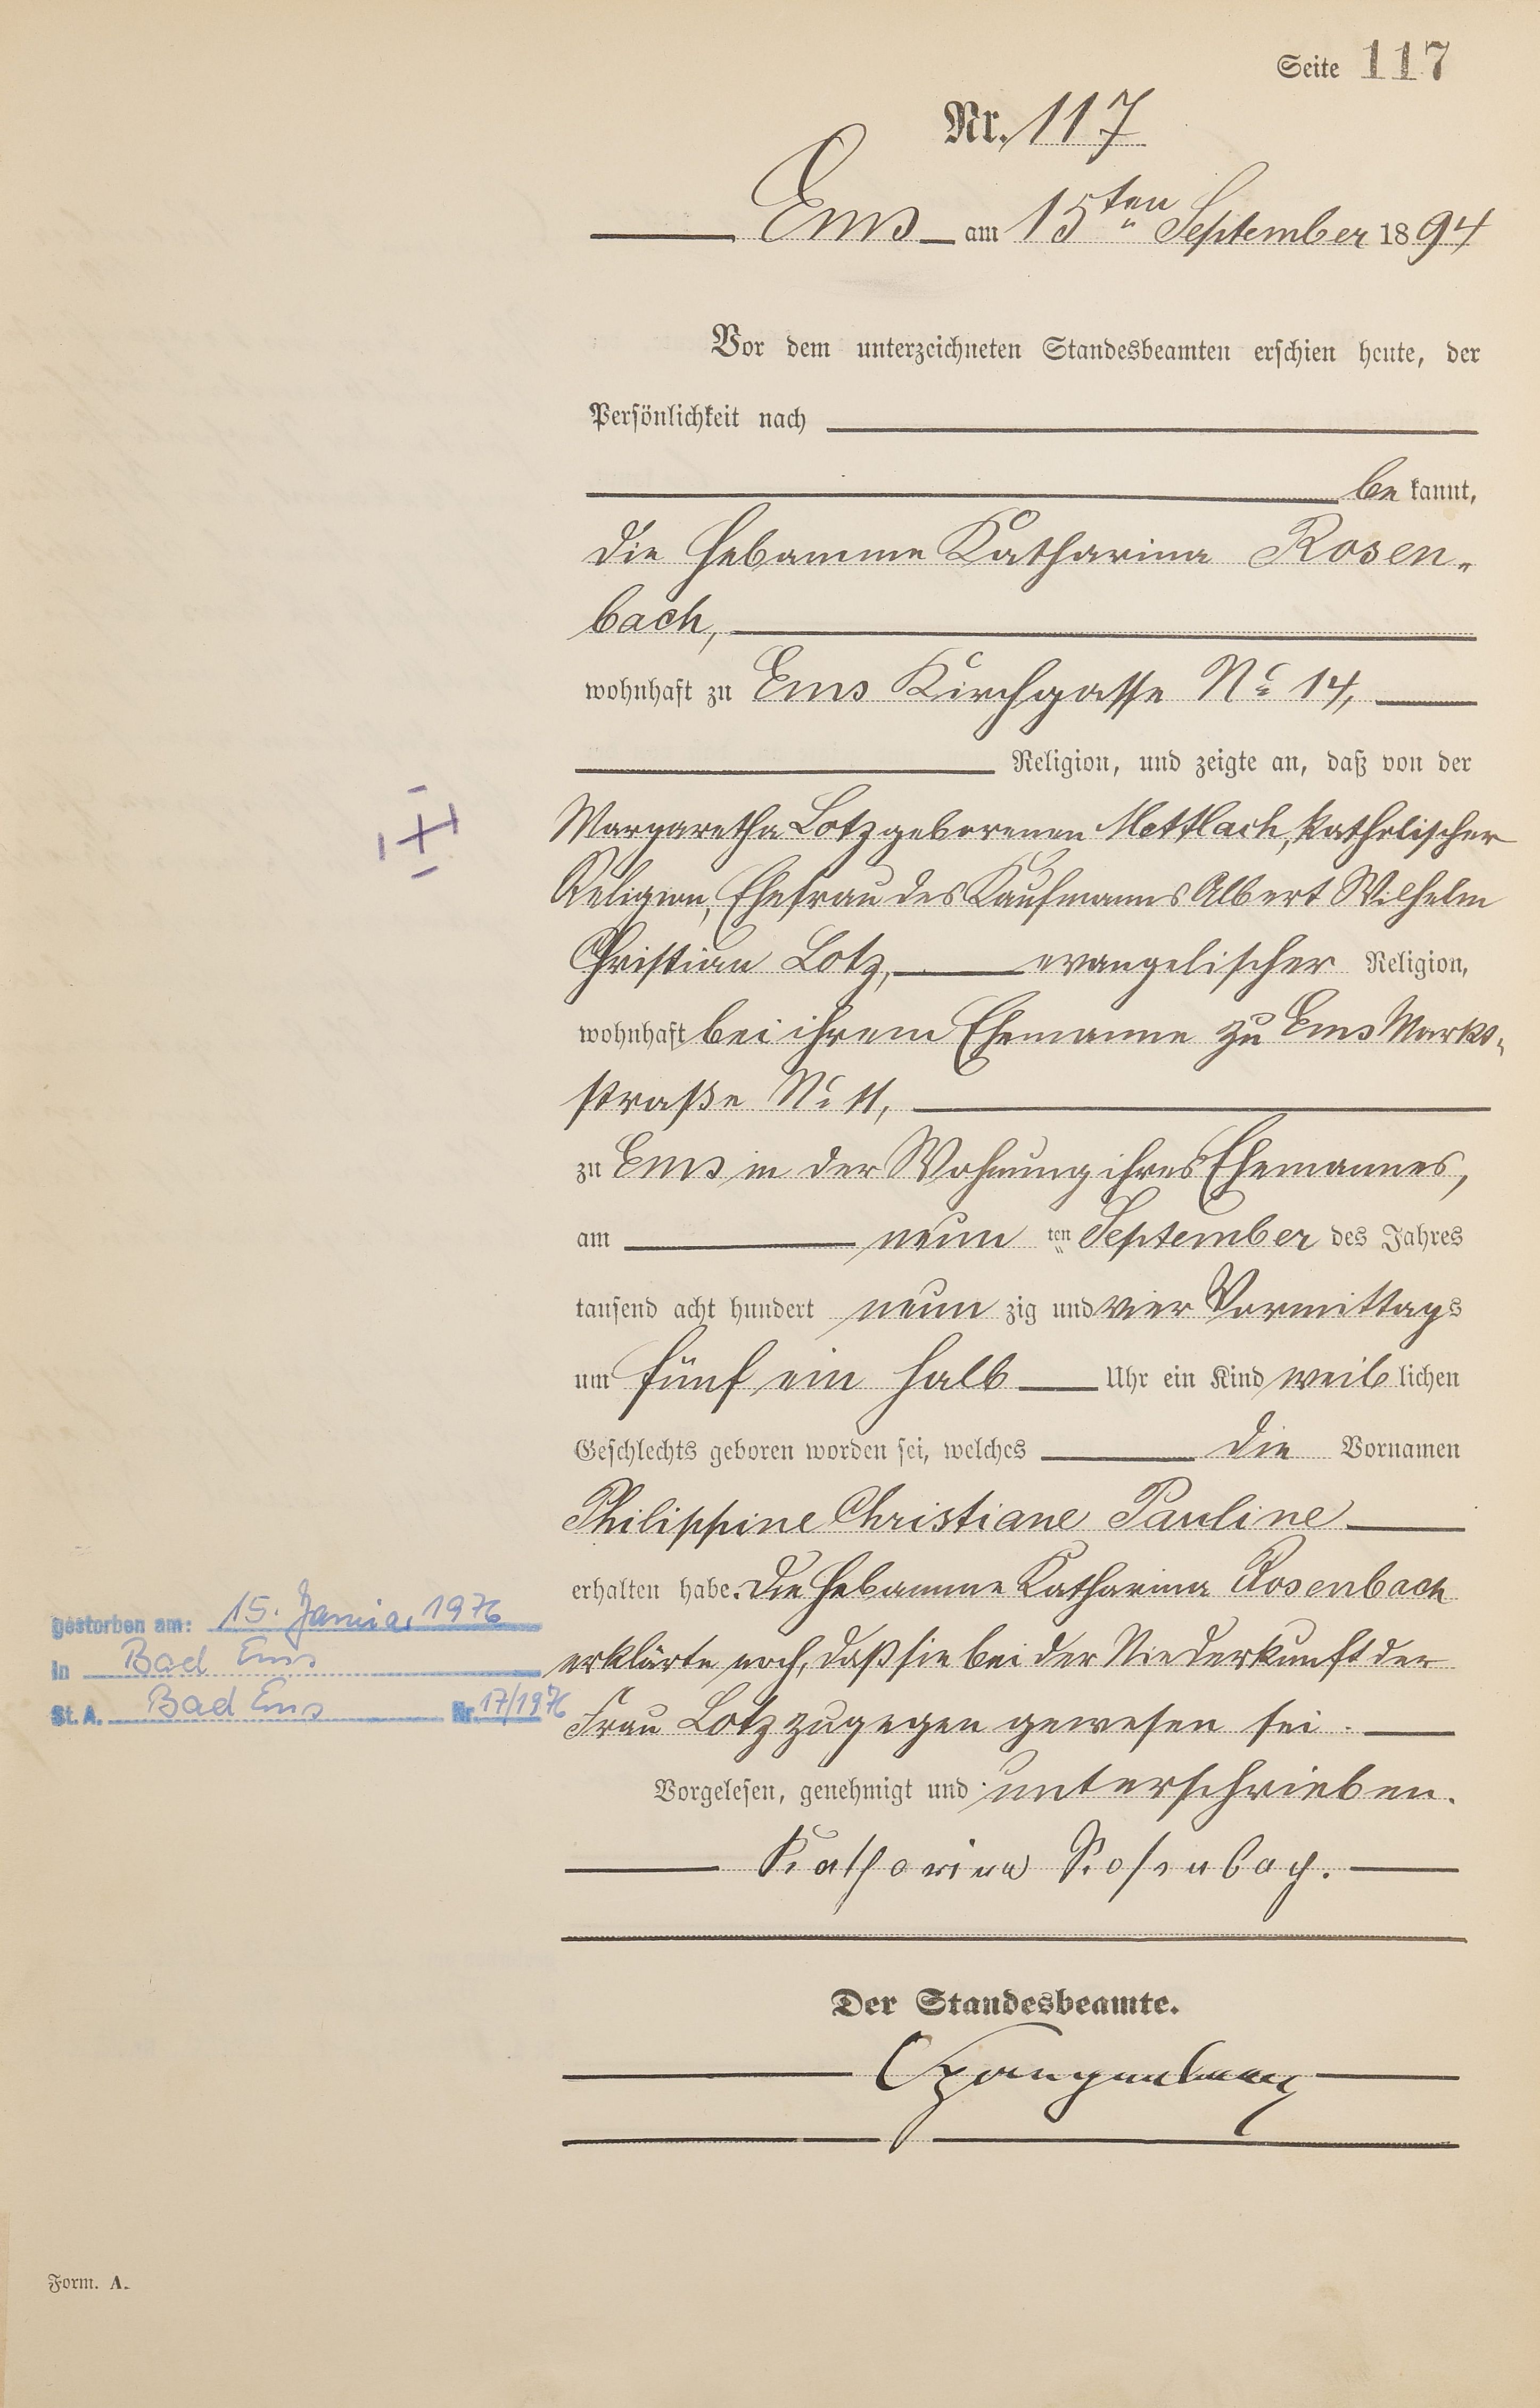 Seite 117
Nr. 117
Ems am 15ten September 1894
Vor dem unterzeichneten Standesbeamten erschien heute, der
Persönlichkeit nach
be kannt,
die Hebamme Katharina Rosen-
bach,
wohnhaft zu Ems Kirchgasse No 14,
Religion, und zeigte an, daß von der
Margaretha Lotz geborenen Mottlach, katholischer
Religion, Ehefrau des Kaufmanns Albert Wilhelm
Christian Lotz, evangelischer Religion,
wohnhaft bei ihrem Ehemanne zu Ems Markt-
straße No 11,
zu Ems in der Wohnung ihres Ehemannes,
am neun ten September des Jahres
tausend acht hundert neun zig und vier Vormittags
um fünf ein halb Uhr ein Kind weib lichen
Geschlechts geboren worden sei, welches die Vornamen
Philippine Christiane Pauline
erhalten habe. Die Hebamme Katharina Rosenbach
erklärte noch, daß sie bei der Niederkunft der
Frau Lotz zugegen gewesen sei.
Vorgelesen, genehmigt und unterschrieben.
Katharina Rosenbach.
Der Standesbeamte.
gestorben am: 15. Januar 1976
in Bad Ems
St. A. Bad Ems Nr. 17/1976
Form. A.